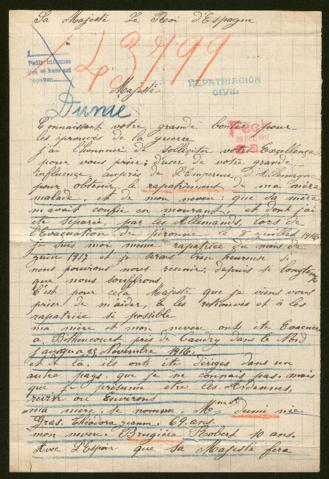 Sa Majesté Le Roi d'Espagne
43799
Petits infirmes
REPATRIACIÓN
CIVIL
Majesté
Dunie
Connaissant votre grande bonté pour
les éprouvés de la guerre
j'ai l'honneur de sollicité votre Excellence
pour vous prier; d'user de votre grande
influence auprès de l'Empereur d'Allemagne
pour obtenir le rapatriement de ma mère
malade et de mon neveu; que sa mère
m'avait confié en mourant et dont j'ai
été séparée par les Allemands lors de
l'Evacuation de péronne le 8 juillet 1916.
je suis moi même rapatriée du mois de
juin 1917 et je serais bien heureuse si
nous pouvions nous réunir; depuis si longtemps
que nous souffrons
C'est pour cela Majesté que je viens vous
prier de m'aider à les retrouvés et à les
rapatriés si possible
ma mère et mon neveu ont été Evacués
à Bethencourt près de Caudry dans le Nord
jusqu'au 23 Novembre 1916.
et de là ils ont été dirigés dans un
autre pays que je ne connais pas. mais
que je présume être les Ardennes,
ou Environs
ma mère se nomme. Mme Dunie née
Gras. Théodora jeanne. 69 ans.
mon neveu. Brugière Robert 10 ans.
Avec L'Espoir que Sa Majesté fera